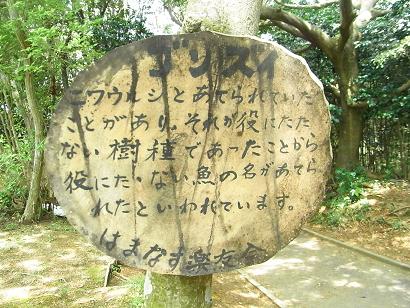 ゴンズイ
ニワウルシとあてられていた
ことがあり、それが役にたた
ない樹種であったことから
役にたたない魚の名があてら
れたといわれています。
はまなす楽友会